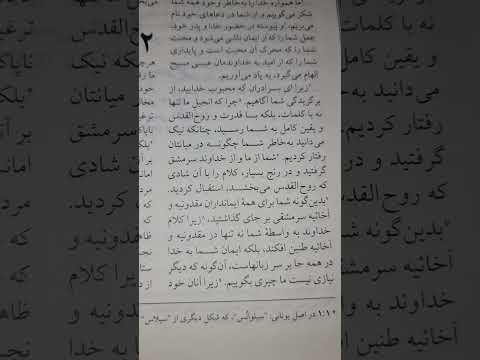 اما همواره خدا را به‌خاطر وجود همه شما
شکر می‌گوییم و از شما در دعاهای خود نام
می‌بریم، و پیوسته در حضور خدا و پدر خود،
عمل شما را که از ایمان ناشی می‌شود و محنت
شما را که محرک آن محبت است و پایداری
شما را که از امید به خداوندمان عیسی مسیح
الهام می‌گیرد، به یاد می‌آوریم.
۲
زیرا ای برادران که محبوب خدایید، از
برگزیدگی شما آگاهیم. چرا که انجیل ما تنها
نه با کلمات، بلکه با قدرت و روح‌القدس
و یقین کامل به شما رسید، چنانکه نیک
می‌دانید به‌خاطر شما چگونه در میانتان
رفتار کردیم. شما از ما و از خداوند سرمشق
گرفتید و در رنج بسیار، کلام را با آن شادی
که روح‌القدس می‌بخشد، استقبال کردید.
بدین‌گونه شما برای همهٔ ایمانداران مقدونیه و
اَخائیه سرمشقی بر جای گذاشتید، زیرا کلام
خداوند به واسطهٔ شما نه تنها در مقدونیه و
اَخائیه طنین افکند، بلکه ایمان شما به خدا
در همه جا بر سر زبانهاست، آن‌گونه که دیگر
نیازی نیست ما چیزی بگوییم. زیرا آنان خود
۱:۱ در اصل یونانی: ”سیلوانُس“، که شکل دیگری از ”سیلاس“